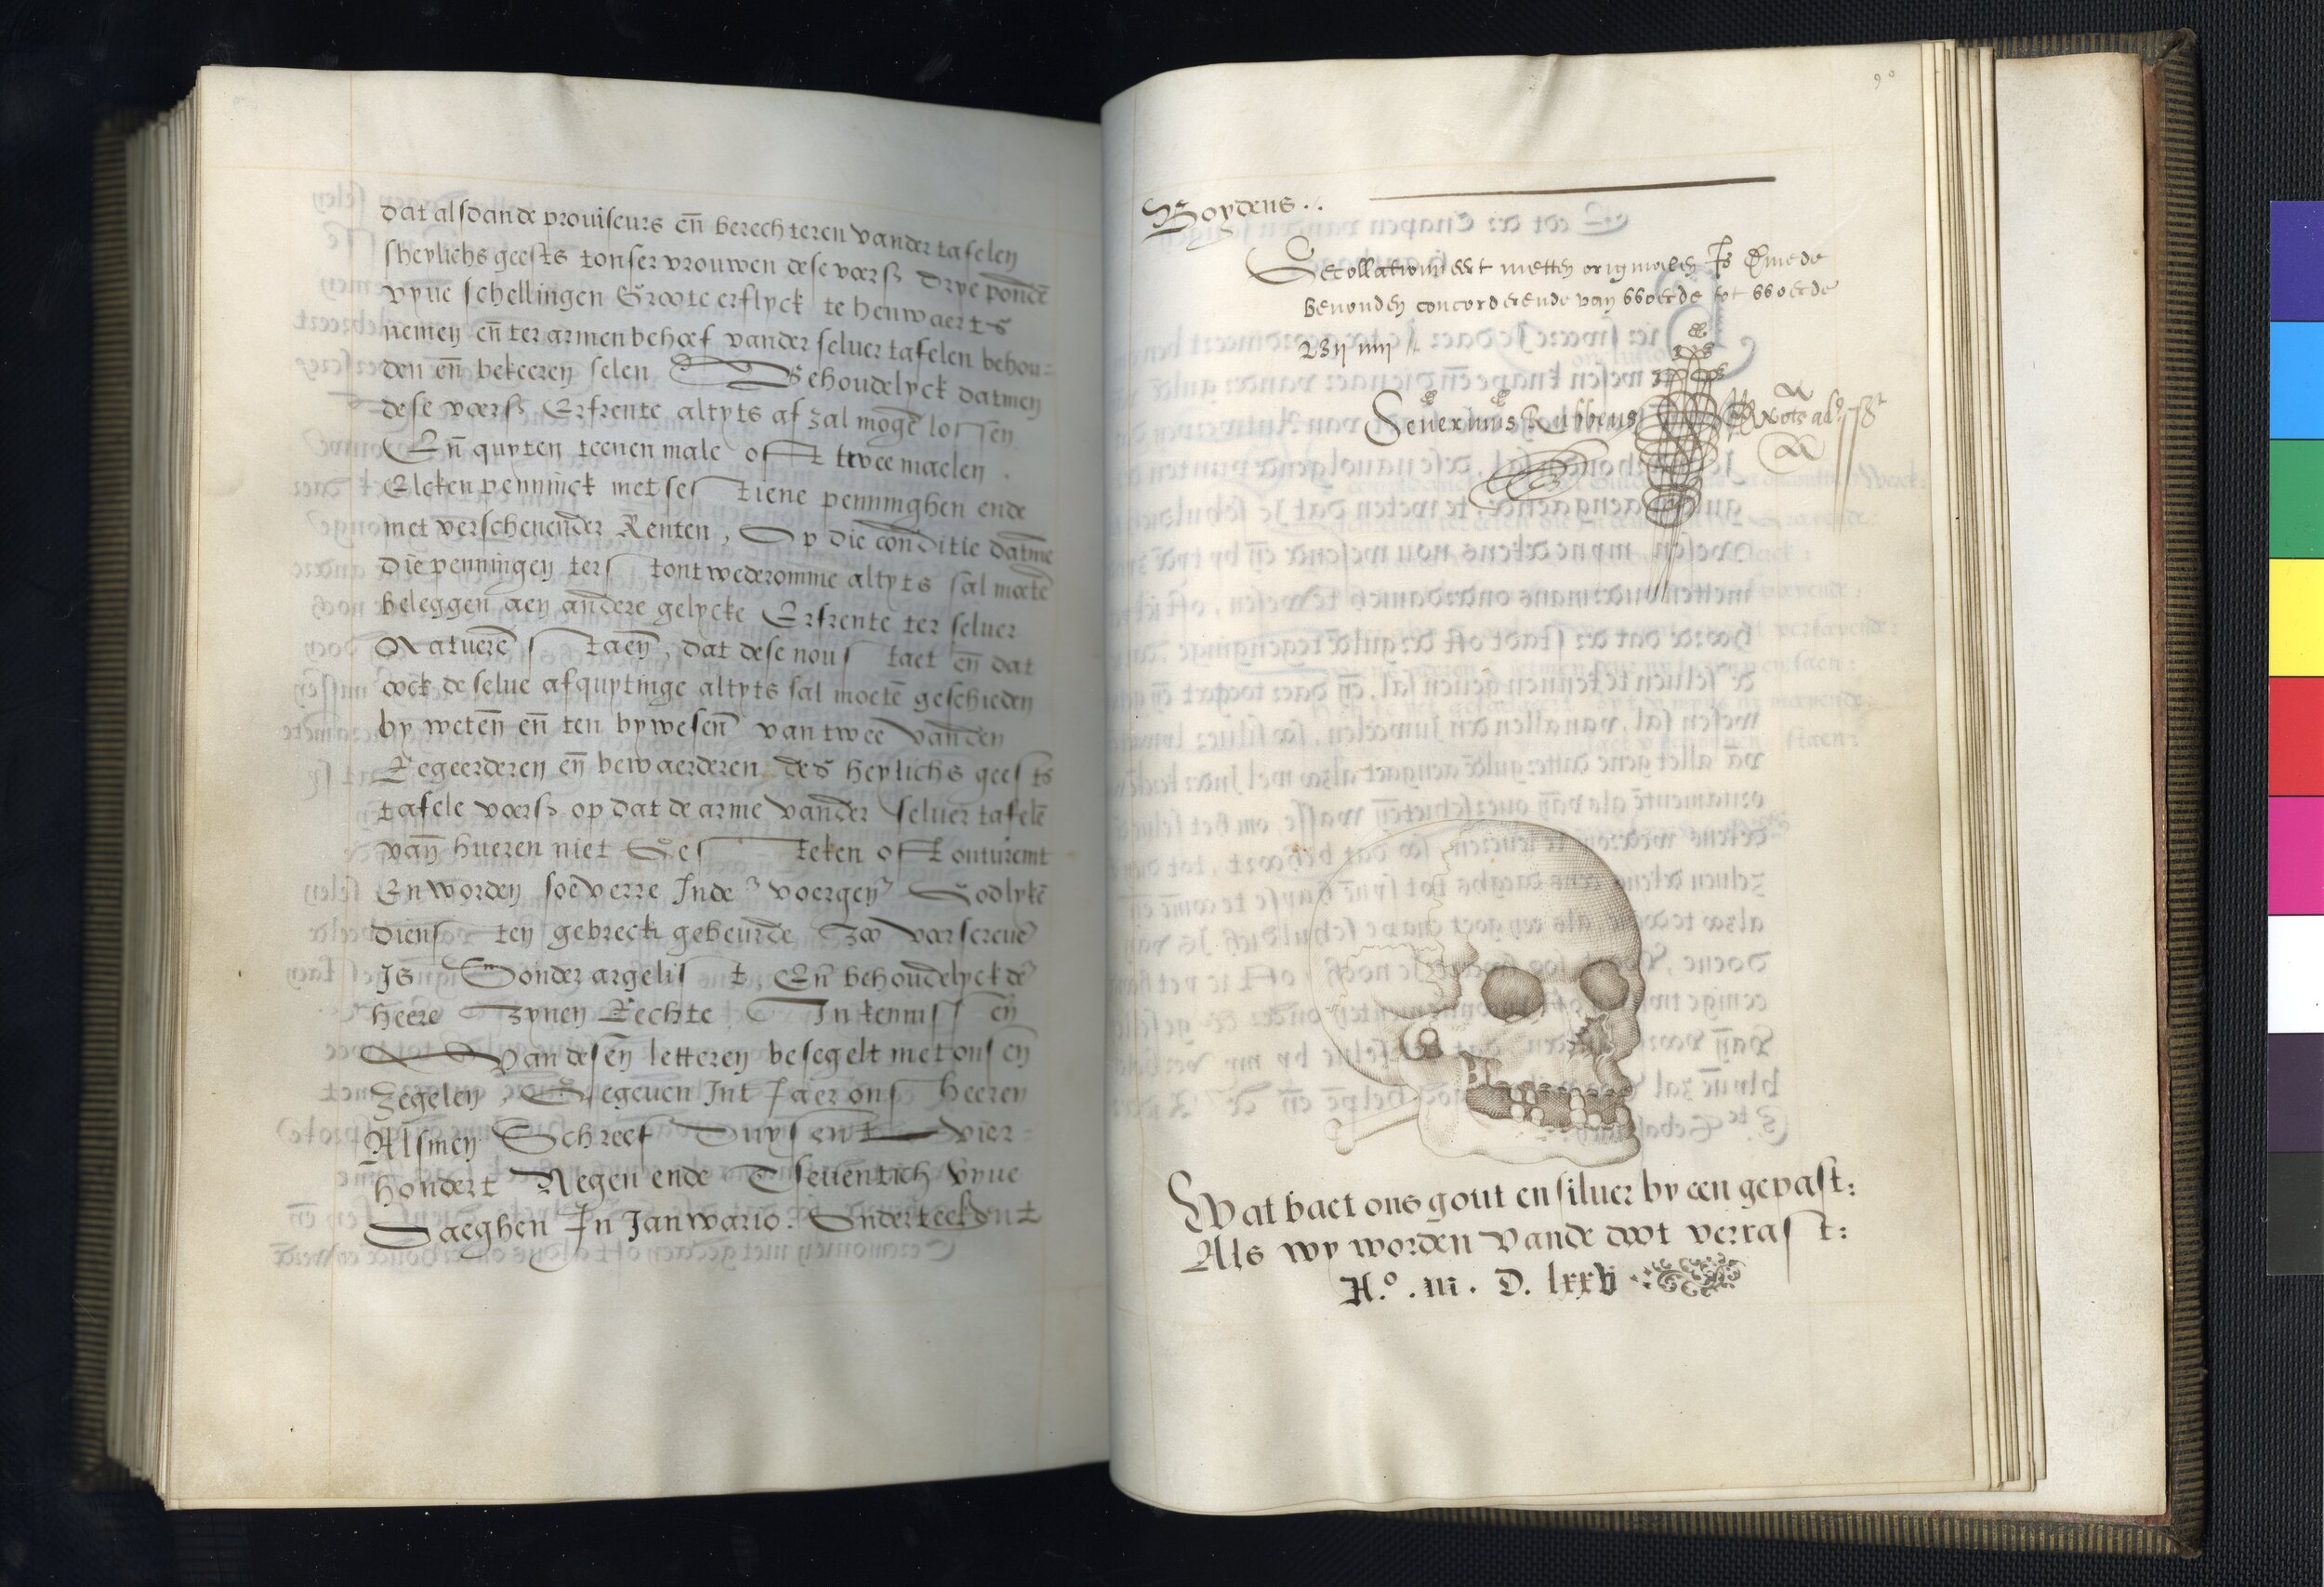 dat alsdan de prouiseurs en̄ berechteren vander tafelen
sheylichs geests tonser vrouwen dese voers drye pondē
vyue schellingen Groote erflyck te henwaerts
nemen en̄ ter armen behoef vander seluer tafelen behou=
den en̄ bekeeren selen Behoudelyck datmen
dese voers Erfrente altyts af zal mogē lossen
En̄ quyten teenen male oft twee maelen.
Elcken penninck met sestiene penninghen ende
met verschenender Renten, Op die conditie datmē
die penningen terstont wederomme altyts sal moetē
beleggen aen andere gelycke Erfrente ter seluer
Natuerē staen, dat dese nou staet en̄ dat
oock de selue afquytinge altyts sal moetē geschieden
by weten en̄ ten bywesen van twee vanden
Regeerderen en̄ bewaerderen des heylichs geests
tafele voers op dat de arme vander seluer tafelē
van hueren niet Gesteken oft
En worden soe verre Inde voergen Godlykē
dienstен gebreck gebeurde Zoo voerscreuē
Is Sonder argelist En̄ behoudelyck dē
heere zynen Rechte In kennissen
Van desen letteren besegelt met onsen
Zegelen, Gegeuen Int Jaer ons heeren
Alsmen Schreef Duysent vier
hondert Negen ende Tseuentich vyue
Daeghen In Januario. Onderteekent
90
Boydens.
Gecollationneert metten originalen Is Dmede
beuonden concorderende van woerde tot woerde
Seuerinus Rubbens
Wat baet ons gout en siluer by een gepast:
Als wy worden vande doot verrast:
A.º .m. D. lxxv